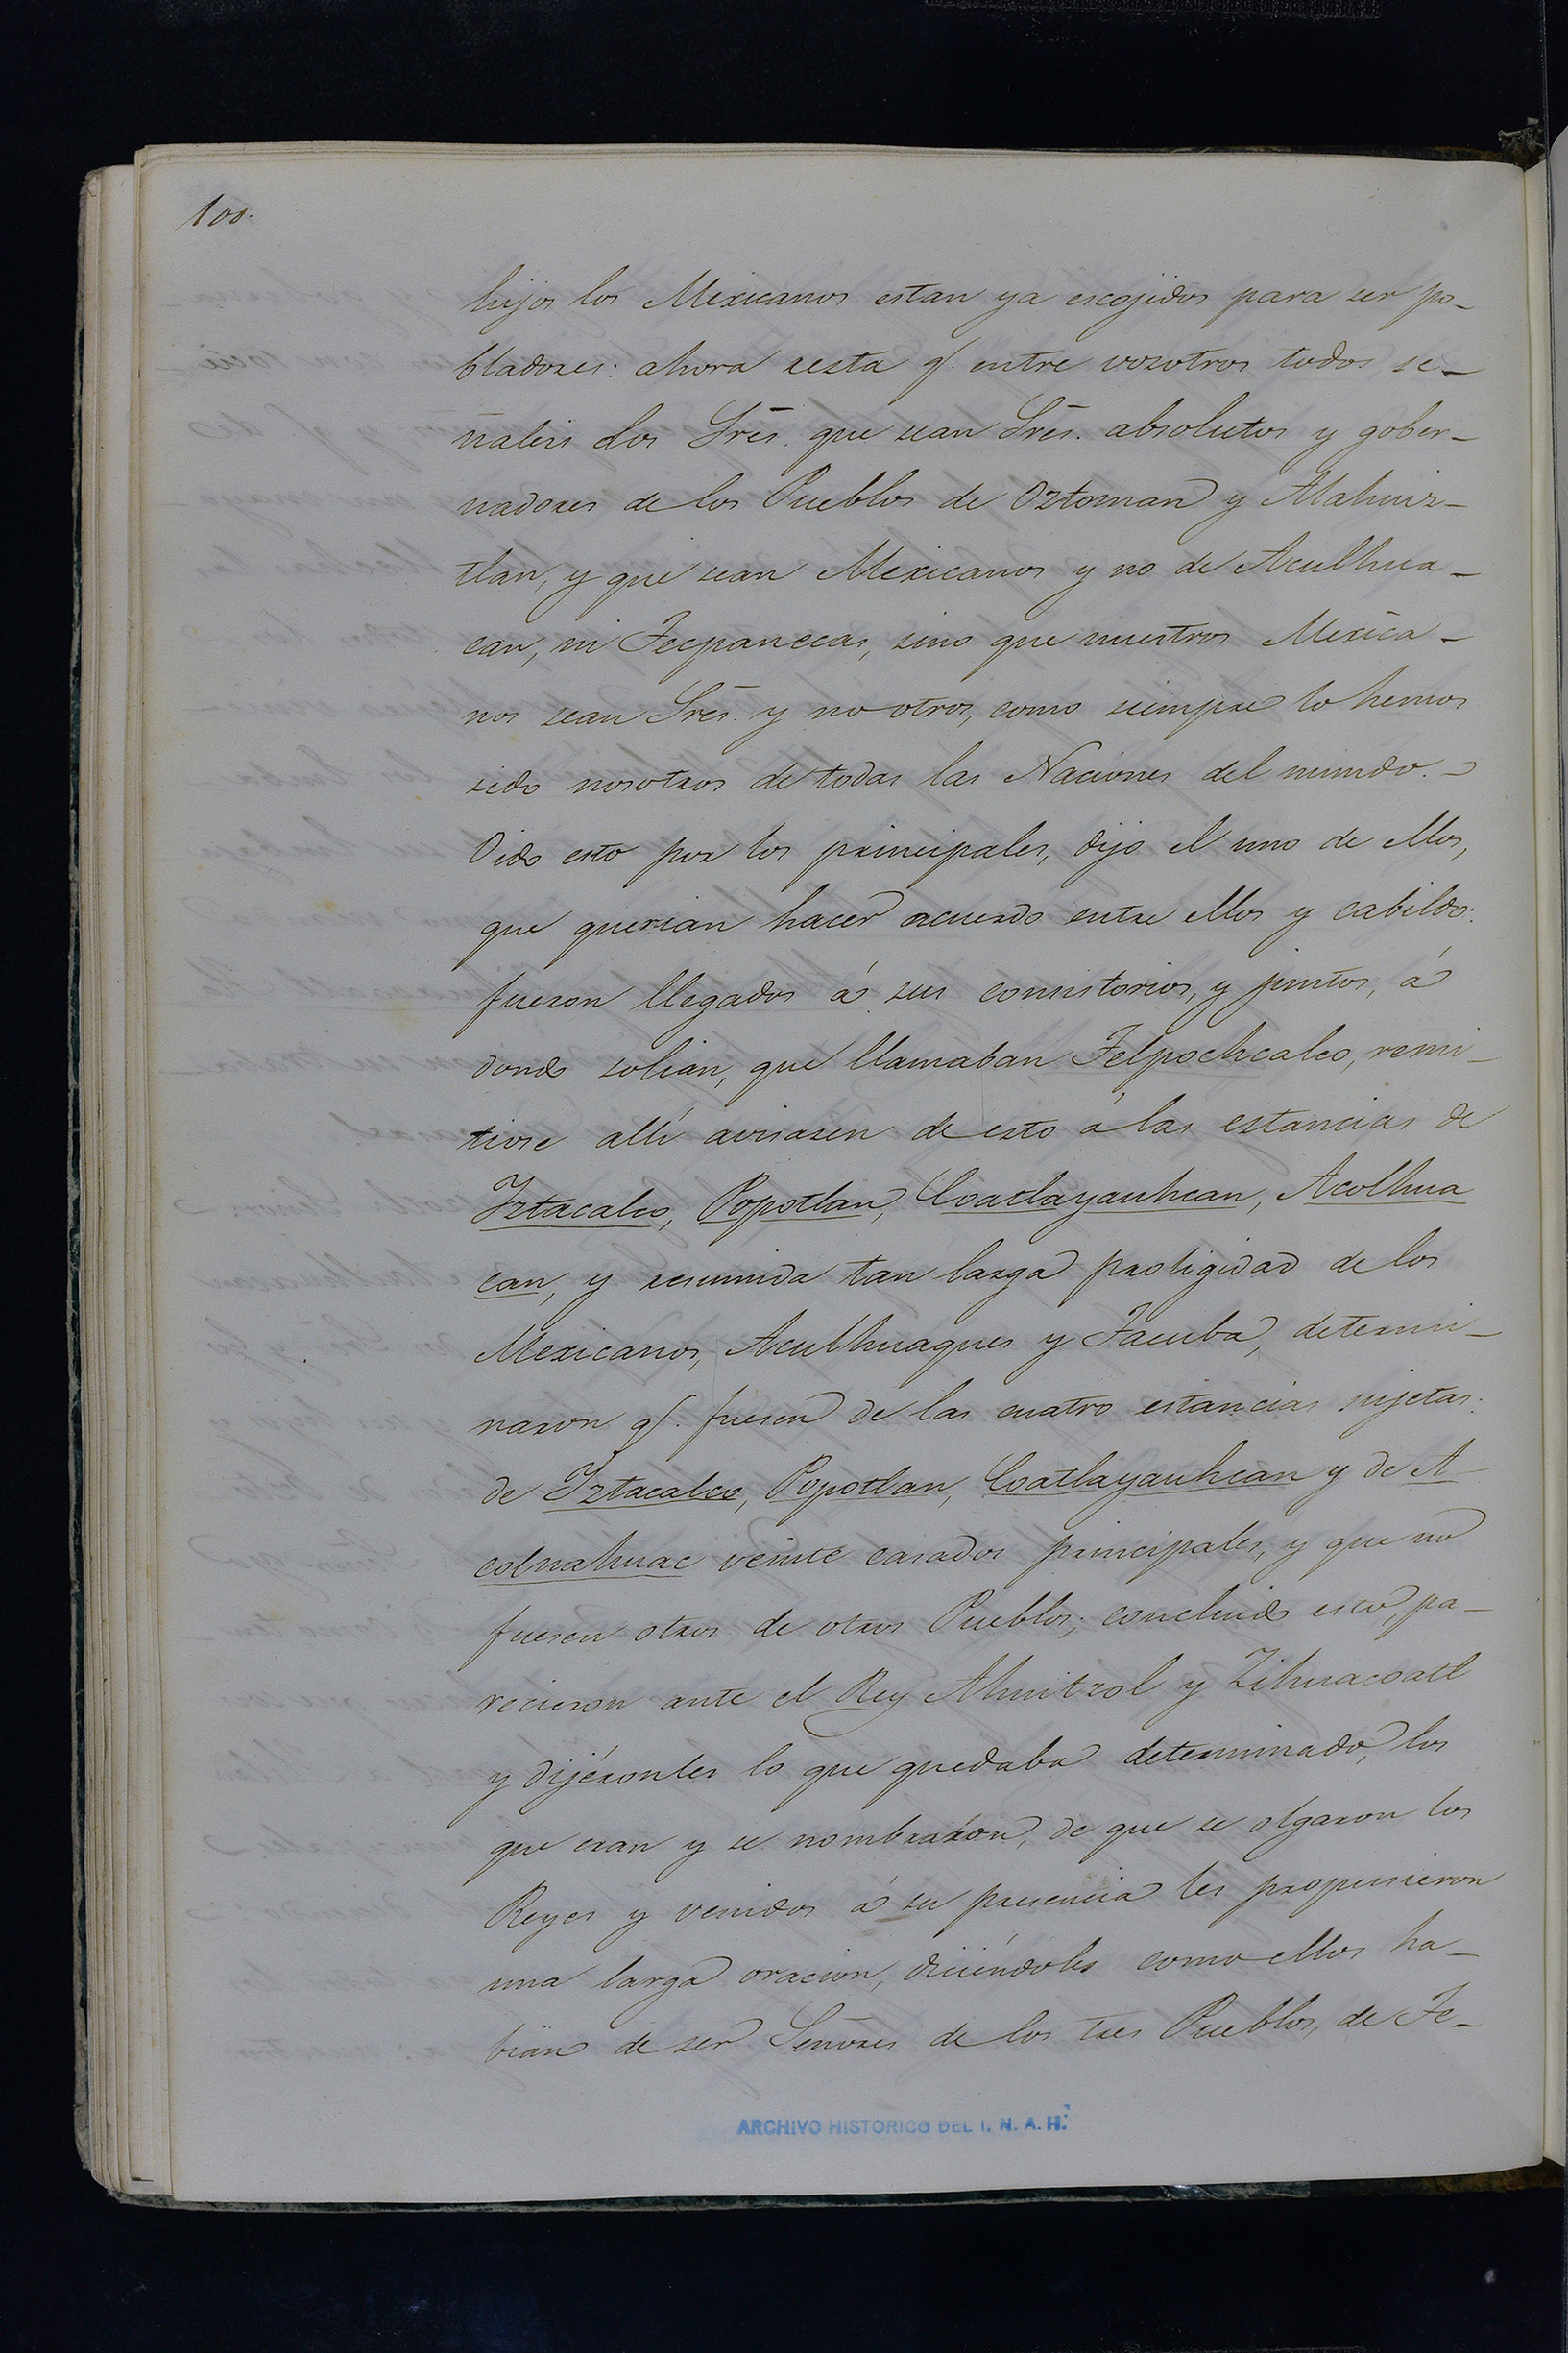 100.
hijos los Mexicanos estan ya escojidos para ser po-
bladores: ahora resta q.e entre vosotros todos se-
ñaleis dos Sres. que sean Sres. absolutos y gober-
nadores de los Pueblos de Oztoman y Alahuiz-
tlan, y que sean Mexicanos y no de Aculhua-
can, ni Tecpanecas, sino que nuestros Mexica-
nos sean Sres. y no otros, como siempre lo hemos
sido nosotros de todas las Naciones del mundo.-
Oido esto por los principales, dijo el uno de ellos,
que querian hacer acuerdo entre ellos y cabildo:
fueron llegados á sus consistorios, y juntos, á
donde solian, que llamaban Telpochcalco, remi-
tiose allí avisasen de esto á las estancias de
Iztacalco, Popotlan, Coatlayauhcan, Acolhua
can, y resumida tan larga proligidad de los
Mexicanos, Aculhuaques y Tacuba, determi-
naron q.e fuesen de las cuatro estancias sujetas:
de Iztacalco, Popotlan, Coatlayauhcan y de A-
colnahuac veinte casados principales, y que no
fuesen otros de otros Pueblos; concluido esto, pa-
recieron ante el Rey Ahuitzol y Zihuacoatl
y dijéronles lo que quedaba determinado, los
que eran y se nombraron, de que se olgaron los
Reyes y venidos á su presencia les propusieron
una larga oracion, diciéndoles como ellos ha-
bian de ser Señores de los tres Pueblos, de Te-
ARCHIVO HISTORICO DEL I. N. A. H.